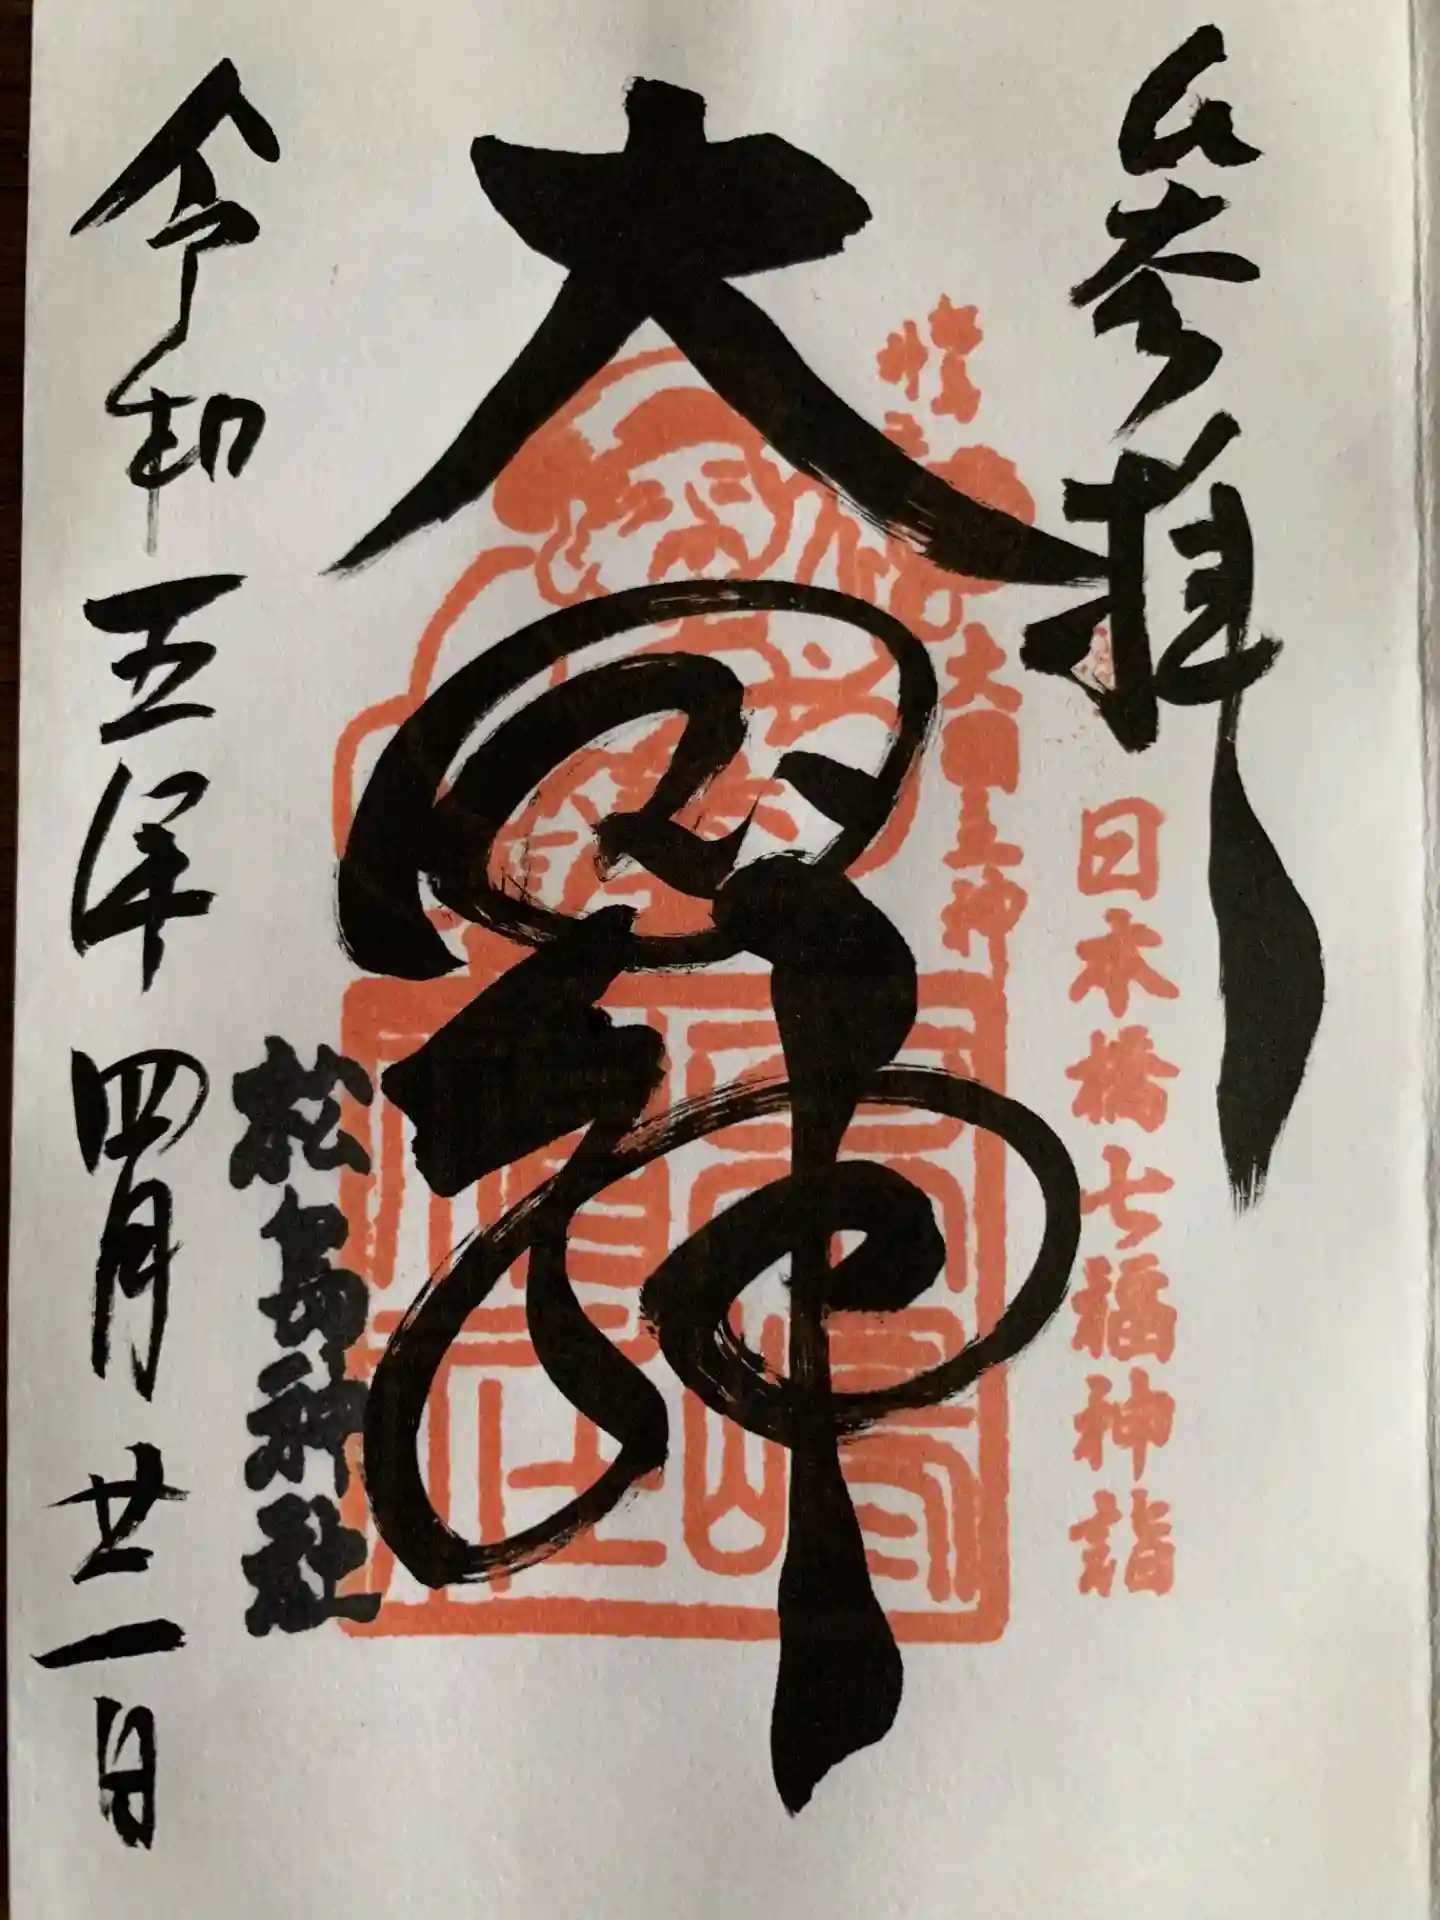 奉拝
日本橋七福神詣
大國主神
大國神
松島神社
令和五年四月廿一日